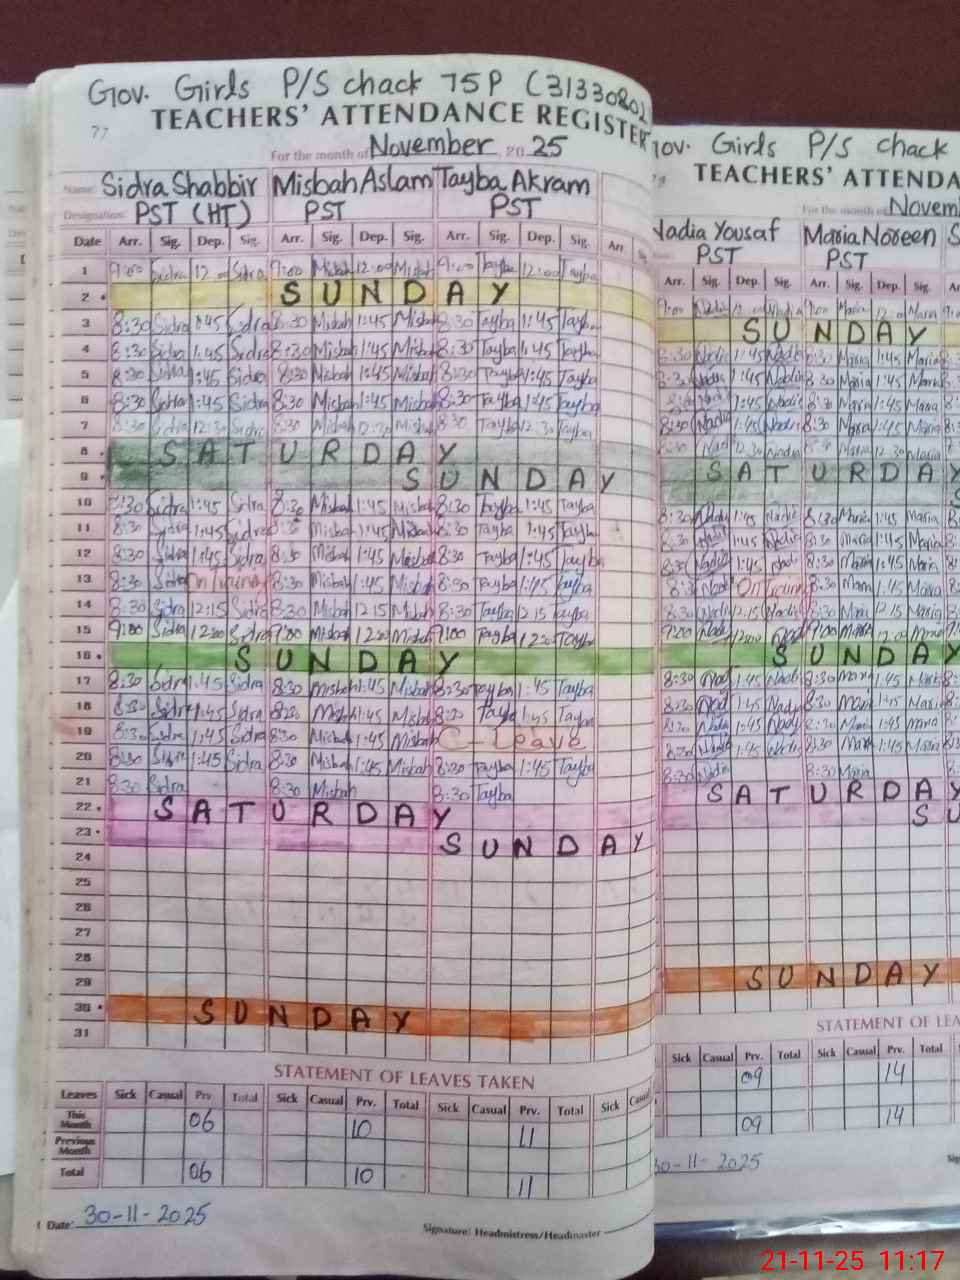 Gov. Girls P/S chack 75P (31330802
TEACHERS' ATTENDANCE REGISTER
77
For the month of November, 20 25
Name: Sidra Shabbir Misbah Aslam Tayba Akram
Designation: PST (HT) PST PST
Date Arr. Sig. Dep. Sig. Arr. Sig. Dep. Sig. Arr. Sig. Dep. Sig. Arr
1 9:00 Sidra 12:00 Sidra 9:00 Misbah 12:00 Misbah 9:00 Tayba 12:00 Tayba
2 SUNDAY
3 8:30 Sidra 1:45 Sidra 8:30 Misbah 1:45 Misbah 8:30 Tayba 1:45 Tayba
4 8:30 Sidra 1:45 Sidra 8:30 Misbah 1:45 Misbah 8:30 Tayba 1:45 Tayba
5 8:30 Sidra 1:45 Sidra 8:30 Misbah 1:45 Misbah 8:30 Tayba 1:45 Tayba
6 8:30 Sidra 1:45 Sidra 8:30 Misbah 1:45 Misbah 8:30 Tayba 1:45 Tayba
7 8:30 Sidra 12:30 Sidra 8:30 Misbah 12:30 Misbah 8:30 Tayba 12:30 Tayba
8 SATURDAY
9 SUNDAY
10 8:30 Sidra 1:45 Sidra 8:30 Misbah 1:45 Misbah 8:30 Tayba 1:45 Tayba
11 8:30 Sidra 1:45 Sidra 8:30 Misbah 1:45 Misbah 8:30 Tayba 1:45 Tayba
12 8:30 Sidra 1:45 Sidra 8:30 Misbah 1:45 Misbah 8:30 Tayba 1:45 Tayba
13 8:30 Sidra On 8:30 Misbah 1:45 Misbah 8:30 Tayba 1:45 Tayba
14 8:30 Sidra 12:15 Sidra 8:30 Misbah 12 15 Misbah 8:30 Tayba 12 15 Tayba
15 9:00 Sidra 12:00 Sidra 9:00 Misbah 12:00 Misbah 9:00 Tayba 12:00 Tayba
16 SUNDAY
17 8:30 Sidra 1:45 Sidra 8:30 Misbah 1:45 Misbah 8:30 Tayba 1:45 Tayba
18 8:30 Sidra 1:45 Sidra 8:30 Misbah 1:45 Misbah 8:30 Tayba 1:45 Tayba
19 8:30 Sidra 1:45 Sidra 8:30 Misbah 1:45 Misbah C-Leave
20 8:30 Sidra 1:45 Sidra 8:30 Misbah 1:45 Misbah 8:30 Tayba 1:45 Tayba
21 8:30 Sidra 8:30 Misbah 8:30 Tayba
22 SATURDAY
23 SUNDAY
24
25
26
27
28
29
30 SUNDAY
31
STATEMENT OF LEAVES TAKEN
Leaves Sick Casual Prv Total Sick Casual Prv. Total Sick Casual Prv. Total Sick Casual
This Month 06 10 11
Previous Month
Total 06 10 11
Date: 30-11-2025
Signature: Headmistress/Headmaster
Gov. Girls P/S chack
TEACHERS' ATTENDA
For the month of Novem
Nadia Yousaf Maria Noreen S
PST PST
Arr. Sig. Dep. Sig. Arr. Sig. Dep. Sig. Ar
9:00 Nadia Nadia 9:00 Maria Maria
SUNDAY
8:30 Nadia 1:45 Nadia 8:30 Maria 1:45 Maria
8:30 Nadia 1:45 Nadia 8:30 Maria 1:45 Maria
8:30 Nadia 1:45 Nadia 8:30 Maria 1:45 Maria
8:30 Nadia 1:45 Nadia 8:30 Maria 1:45 Maria
8:30 Nadia 12:30 Nadia 8:30 Maria 12:30 Maria
SATURDAY
8:30 1:45 Nadia 8:30 Maria 1:45 Maria
8:30 Nadia 1:45 Nadia 8:30 Maria 1:45 Maria
8:30 Nadia 1:45 8:30 Maria 1:45 Maria
8:30 On 8:30 Maria 1:45 Maria
8:30 Nadia 12:15 Nadia 8:30 Maria 12 15 Maria
9:00 12:00 9:00 Maria 12:00 Maria
SUNDAY
8:30 1:45 8:30 Maria 1:45 Maria
8:30 1:45 8:30 Maria 1:45 Maria
8:30 Nadia 1:45 8:30 Maria 1:45 Maria
8:30 Nadia 1:45 8:30 Maria 1:45 Maria
8:30 Nadia 8:30 Maria
SATURDAY
SU
SUNDAY
STATEMENT OF LEA
Sick Casual Prv. Total Sick Casual Prv. Total
09 14
09 14
30-11-2025
21-11-25 11:17